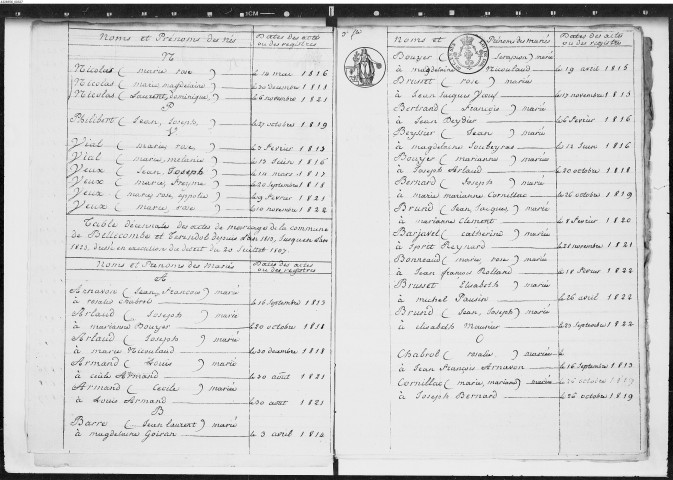 Noms et Prénoms des nés Dates des actes ou des registres
N
Nicolas (marie rose) le 14 mai 1816
Nicolas (marie magdelaine) le 30 decembre 1811
Nicolas (Laurent, dominique) le 6 novembre 1821
P
Philibert (Jean, Joseph) le 27 octobre 1819
V
Vial (marie, rose) le 7 Février 1813
Vial (marie, melanie) le 12 Juin 1816
Veux (Jean, Joseph) le 12 mars 1817
Veux (marie, Freyme) le 20 septembre 1818
Veux (marie, rose, appolo) le 9 Février 1821
Veux (marie, rose) le 10 novembre 1822
Table décennale des actes de mariage de la commune
de Bellecombe et Tarendol depuis l'an 1813, Jusqu'en l'an
1823, dressé en exécution du décret du 20 Juillet 1807.
Noms et Prénoms des Mariés Dates des actes ou des registres
A
Arnavon (Jean, Francois) marié
à rosalie Chabrol le 16 septembre 1813
Arlaud (Joseph) marié
à marianne Bouyer le 20 octobre 1818
Artaud (Joseph) marié
à marie Nicoulaud le 30 decembre 1818
Armand (Louis) marié
à cécile Armand le 30 août 1821
Armand (Cecile) mariée
à Louis Armand le 30 août 1821
B
Barre (Jean laurent) marié
à magdelaine Goiran le 3 avril 1814
Noms et Prénoms des mariés Dates des actes ou des registres
Bouyer (Serapion) marié
à magdelaine Nicoulaud le 19 avril 1815
Brusset (rose) mariée
à Jean Jacques Yoeuf le 17 novembre 1813
Bertrand (François) marié
à Jean Beydier le 6 Février 1816
Beyssier (Jean) marié
à magdelaine Soubeyras le 12 Juin 1816
Bouyer (marianne) mariée
à Joseph Arlaud le 20 octobre 1818
Bernard (Joseph) marié
à marie marianne Cornillac le 26 octobre 1819
Brund (Jean, Jacques) marié
à marianne Clement le 8 Février 1820
Barjavel (catherine) mariée
à Spret Reynard le 28 novembre 1821
Bonneaud (marie, rose) mariée
à Jean françois Rolland le 18 Février 1822
Brusset (Elisabeth) mariée
à michel Pausin le 26 avril 1822
Brund (Jean, Joseph) marié
à elisabeth Maurier le 23 septembre 1822
C
Chabrol (rosalie) mariée
à Jean François Arnavon le 16 septembre 1813
Cornillac (marie, mariane) mariée le 26 octobre 1819
à Joseph Bernard le 26 octobre 1819